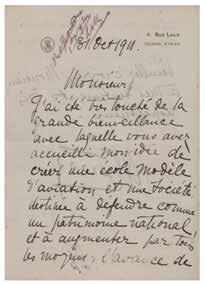 31 Oct 1911.
Monsieur
J'ai été très touché de la
grande bienveillance
avec laquelle vous avez
accueilli mon idée de
créer une école modèle
d'aviation, et une Société
destinée à défendre comme
un patrimoine national
et à augmenter par tous
les moyens l'avance de